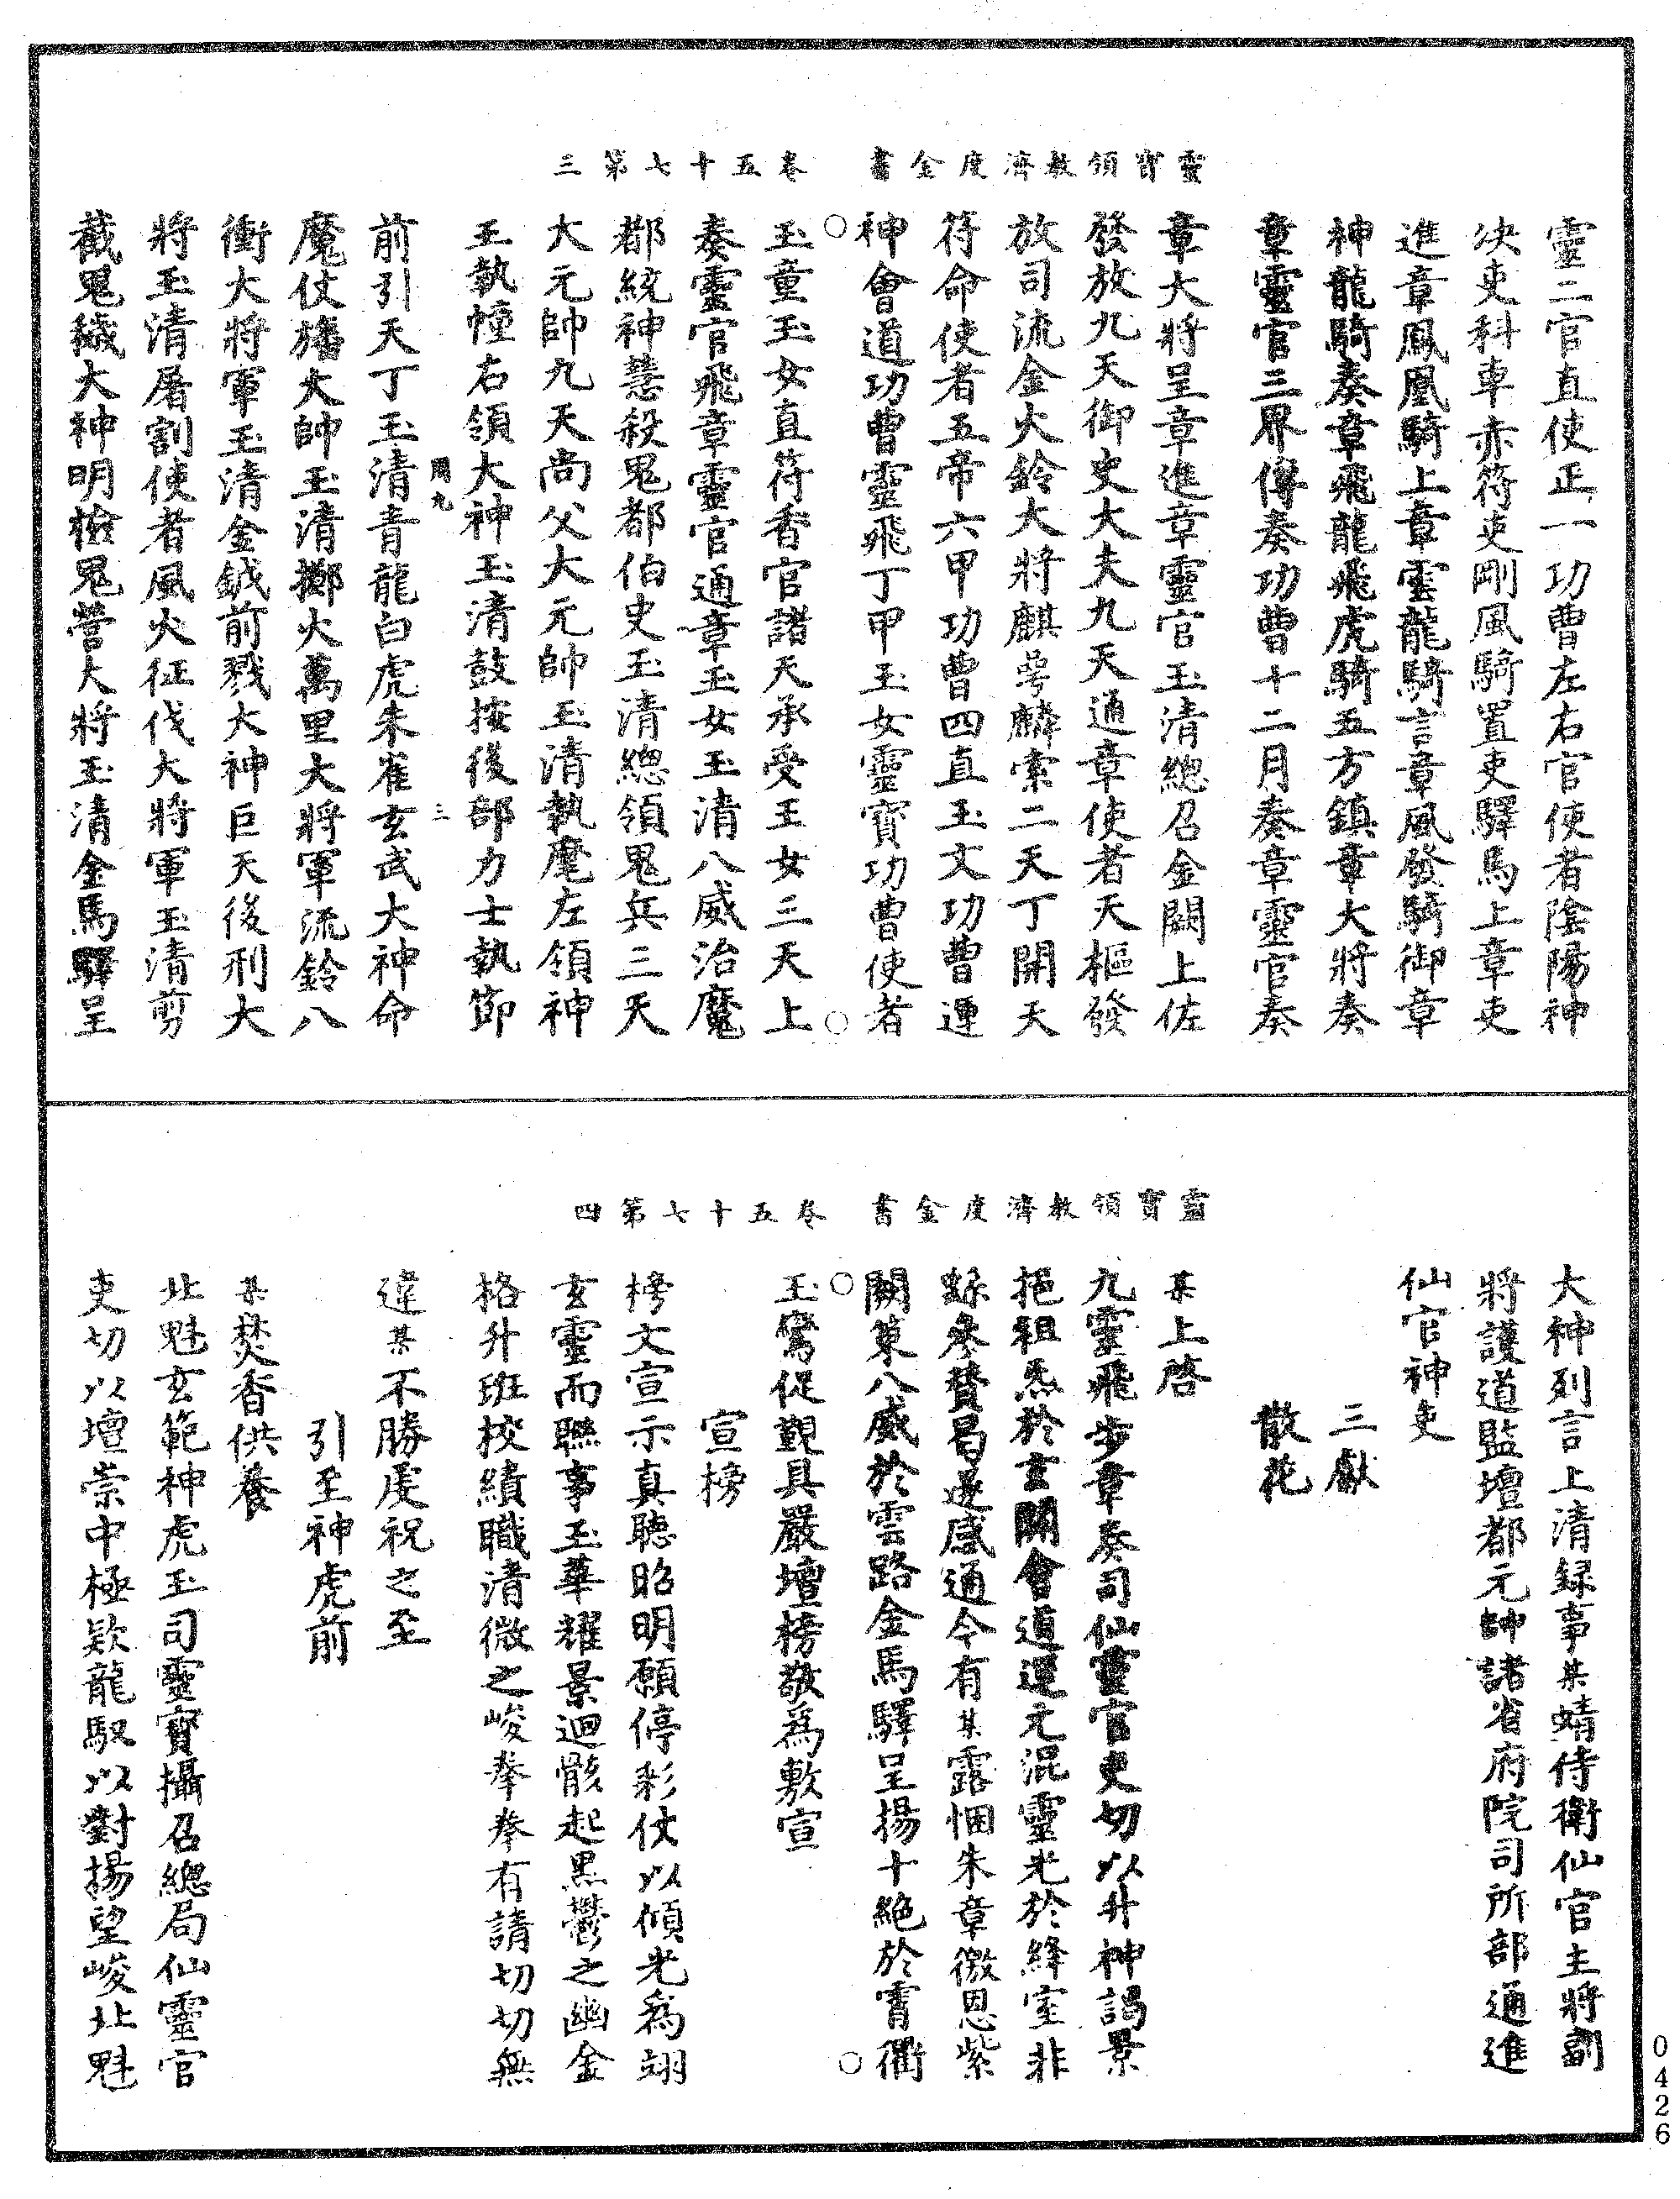 靈寶領教濟度金書　卷五十七第三
靈二官直使正一功曹左右官使者陰陽神
決吏科車赤符吏剛風騎置吏驛馬上章吏
進章鳳凰騎上章雲龍騎言章風發騎御章
神龍騎奏章飛龍飛虎騎五方鎮章大將奏
章靈官三界傳奏功曹十二月奏章靈官奏
章大將呈章進章靈官玉清總召金闕上佐
發放九天御史大夫九天通章使者天樞發
放司流金火鈴大將麒麟索二天丁開天
符命使者五帝六甲功曹四直玉文功曹運
神會道功曹靈飛丁甲玉女靈寶功曹使者
玉童玉女直符香官諸天承受玉女三天上
奏靈官飛章靈官通章玉女玉清八威治魔
都統神慧殺鬼都伯史玉清總領鬼兵三天
大元帥九天尚父大元帥玉清執麾左領神
王執幢右領大神玉清鼓按後部力士執節
開九　三
前引天丁玉清青龍白虎朱雀玄武大神命
魔仗旛大帥玉清擲火萬里大將軍流鈴八
衝大將軍玉清金鉞前戮大神巨天後刑大
將玉清屠割使者風火征伐大將軍玉清剪
截鬼穢大神明檢鬼營大將玉清金馬驛呈
靈寶領教濟度金書　卷五十七第四
大神列言上清録事某蜻侍衛仙官主將副
將護道監壇都元帥諸省府院司所部通進
仙官神吏
三獻
散花
某上啓
九靈飛步章奏司仙靈官吏切以升神謁景
挹祖炁於玄關會道運元混靈光於絳室非
繇參贊曷遂感通今有某露悃朱章徼恩紫
闕策八威於雲路金馬驛呈揚十絶於霄衢
玉鸞促覲具嚴壇榜敬爲敷宣
宣榜
榜文宣示真聽昭明願停彩仗以傾光爲翊
玄靈而聯事玉華耀景迴骸起黑鬱之幽金
格升班校績職清微之峻拳拳有請切切無
違某不勝虔祝之至
引至神虎前
某焚香供養
北魁玄範神虎玉司靈寶攝召總局仙靈官
吏切以壇崇中極欵龍馭以對揚望峻北魁
0426